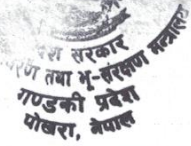 सरकार
तथा भू-संरक्षण मन्त्रालय
गण्डकी प्रदेश
पोखरा, नेपाल